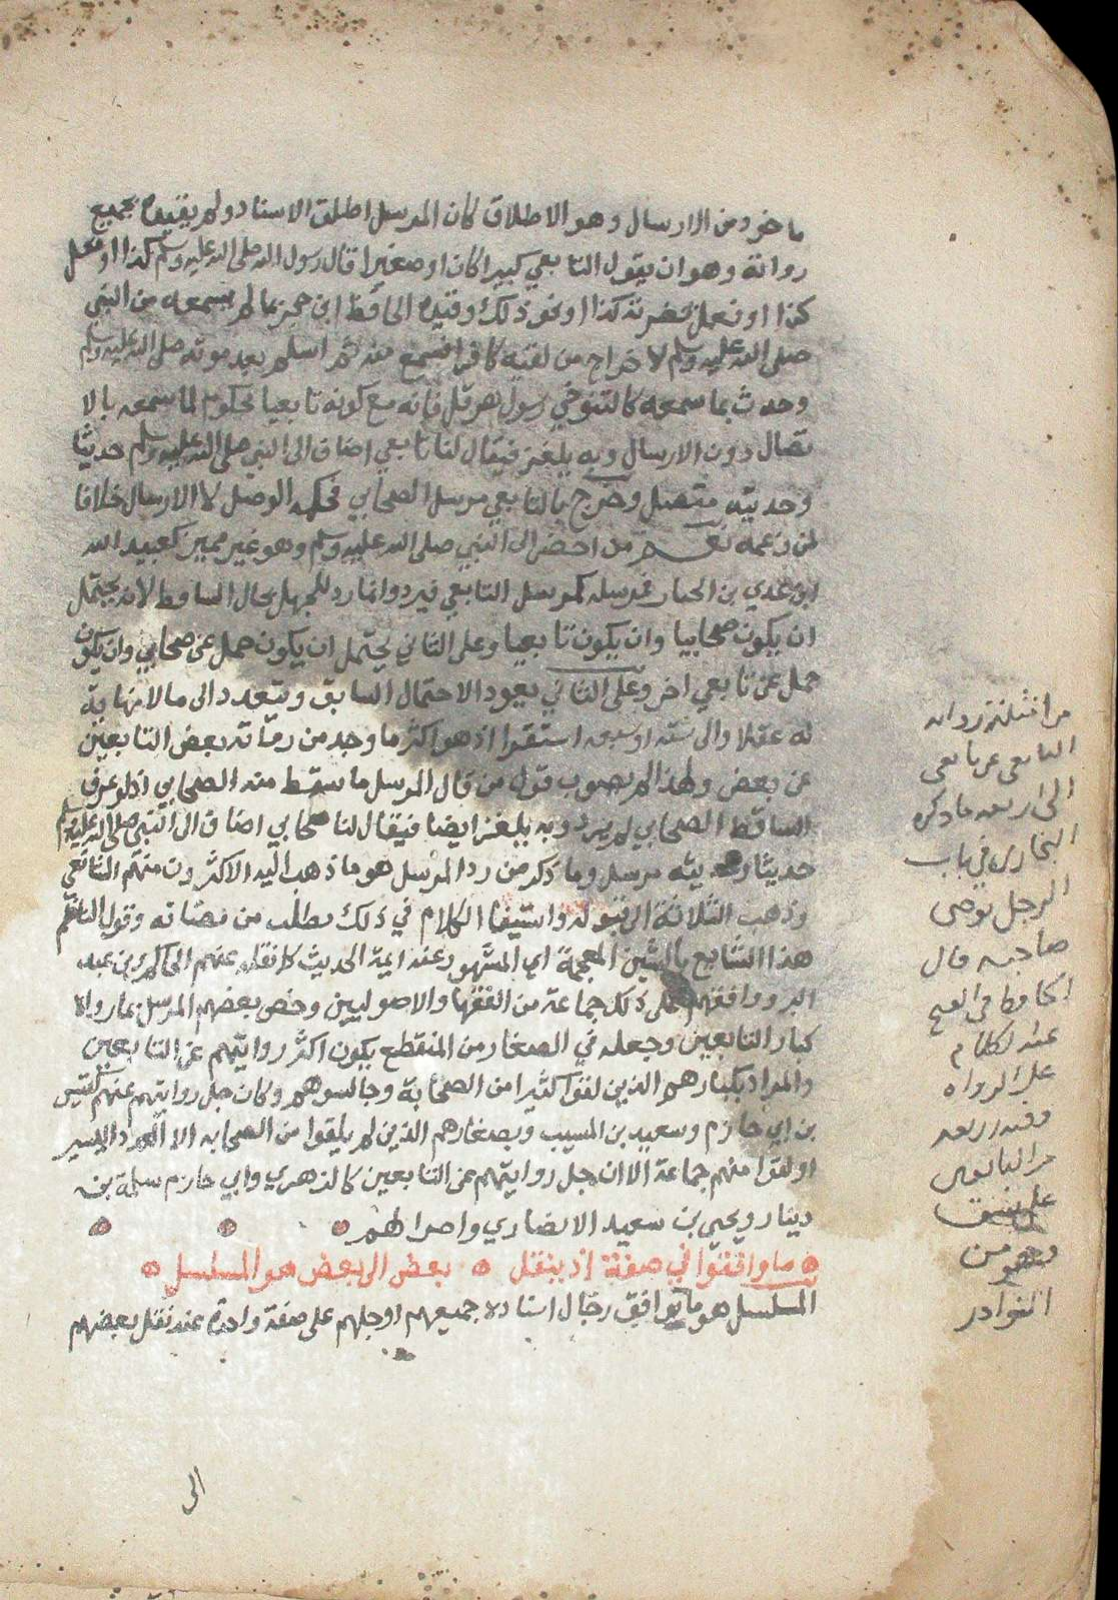 ماخوذ من الارسال وهو الاطلاق كان المرسل اطلق الاسناد ولم يقيده بجميع
رواته وهو ان يقول التابعي كبيرا كان او صغيرا قال رسول الله صلى الله عليه وسلم كذا او فعل
كذا او فعل بحضرته كذا او نحو ذلك وقيده الحافظ ابن حجر بما لم يسمعه من النبي
صلى الله عليه وسلم لاخراج من لقيه كافرا فسمع منه ثم اسلم بعد موته صلى الله عليه وسلم
وحدث بما سمعه كالتنوخي رسول هرقل فانه مع كونه تابعيا محكوم لما سمعه بالا
تصال دون الارسال وبه يلغز فيقال لنا تابعي اضاف الى النبي صلى الله عليه وسلم حديثا
وحديثه متصل وخرج بالتابعي مرسل الصحابي فحكمه الوصل لا الارسال خلافا
لمن زعمه نعم من احضر الى النبي صلى الله عليه وسلم وهو غير مميز كعبيد الله
ابن عدي بن الخيار فمرسله كمرسل التابعي فيرد وانما رد للجهل بحال الساقط لانه يحتمل
ان يكون صحابيا وان يكون تابعيا وعلى الثاني يحتمل ان يكون حمل عن صحابي وان يكون
حمل عن تابعي اخر وعلى الثاني يعود الاحتمال السابق ويتعدد الى مالا نهاية
له عقلا والى ستة او سبعة استقرا اذ هو اكثر ما وجد من رواية بعض التابعين
عن بعض ولهذا لم يصوب قول من قال المرسل ما سقط منه الصحابي اذ لو عرف
الساقط الصحابي لم يرد وبه يلغز ايضا فيقال لنا صحابي اضاف الى النبي صلى الله عليه وسلم
حديثا وحديثه مرسل وما ذكر من رد المرسل هو ما ذهب اليه الاكثرون منهم الشافعي
وذهب الثلاثة الى قبوله واستيفا الكلام في ذلك مطلب من مضانه وقول الناظم
هذا الشايع بالشين المعجمة اي المشهور عند ايمة الحديث كما نقله عنهم الحاكم وابن عبد
البر ووافقهم على ذلك جماعة من الفقها والاصوليين وخص بعضهم المرسل بما رواه
كبار التابعين وجعله في الصغار من المنقطع بكون اكثر روايتهم عن التابعين
والمراد بكبارهم الذين لقوا كثيرا من الصحابة وجالسوهم وكان جل روايتهم عنهم كقيس
بن ابي حازم وسعيد بن المسيب وبصغارهم الذين لم يلقوا من الصحابه الا العدد اليسير
او لقوا منهم جماعة الا ان جل روايتهم عن التابعين كالزهري وابي حازم سلمة بن
دينار ويحيى بن سعيد الانصاري واضرابهم
ما وافقوا في صفة اذ ينقل بعض الى بعض هو المسلسل
المسلسل هو ما توافق رجال اسناده جميعهم او جلهم على صفة واحدة عند نقل بعضهم
الى
من امثلته رواية
التابعي عن تابعي
الى اربعة ما ذكره
البخاري في باب
الرجل يوضي
صاحبه قال
الحافظ في الفتح
عند الكلام
على الرواه
وفيه اربعة
من التابعين
على نسق
وهو من
النوادر